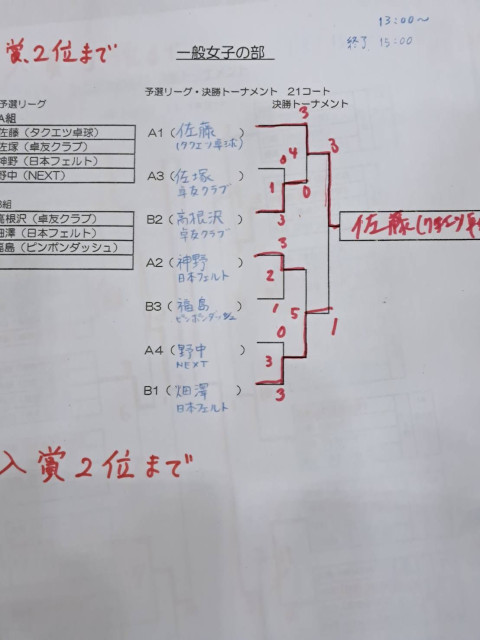 13:00〜
終了 15:00
賞2位まで
一般女子の部
予選リーグ
予選リーグ・決勝トーナメント 21コート
決勝トーナメント
A組
佐藤(タクエツ卓球)
佐塚(卓友クラブ)
神野(日本フェルト)
野中(NEXT)
B組
高根沢(卓友クラブ)
畑澤(日本フェルト)
福島(ピンポンダッシュ)
A1(佐藤)
(タクエツ卓球)
3
4
3
A3(佐塚)
卓友クラブ
0
1
0
B2(高根沢)
卓友クラブ
3
佐藤(タクエツ卓
A2(神野)
日本フェルト
3
2
B3(福島)
ピンポンダッシュ
1
5
1
A4(野中)
NEXT
0
3
B1(畑澤)
日本フェルト
3
入賞2位まで